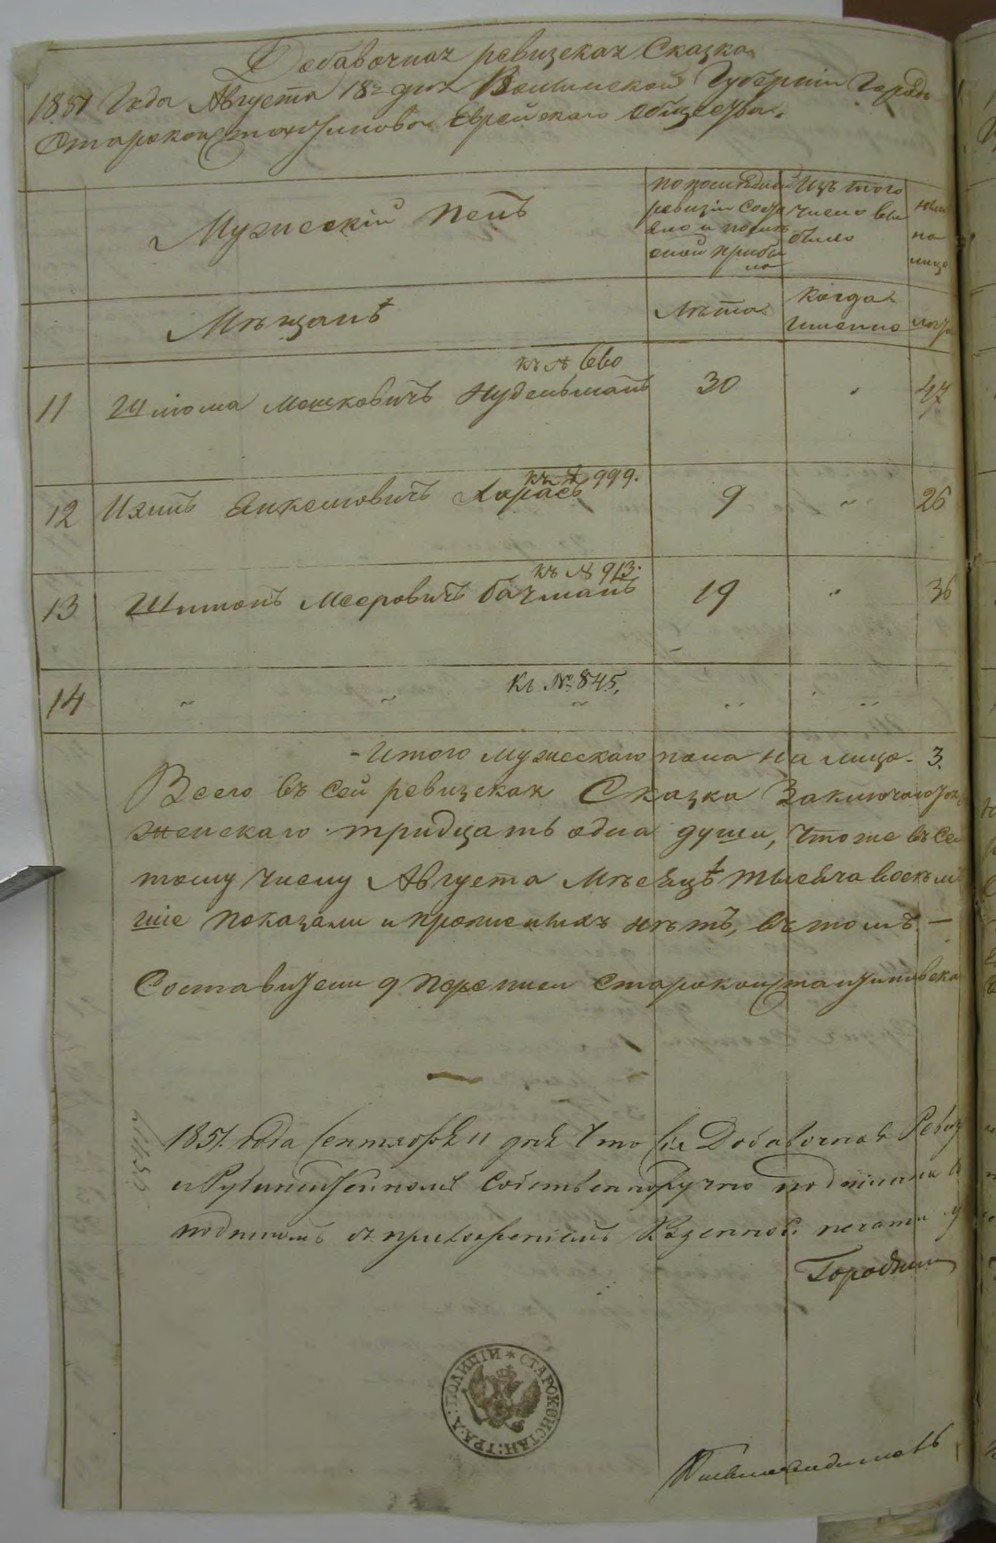 Добавочная ревизская Сказка
1851 Года Августа 18го дня Волынской Губернiи Города
Староконстантинова Еврейского общества.
Мужескiй полъ
по последней
ревизiи состо
яло и после
оной прибы
ло
Изъ того
числа вы
было
ныне
на
лицо
Мѣщанѣ
Лѣта
Когда
именно
лѣта
къ № 660
11 Шлiома Мошковичъ Нудельманъ 30 " 47
къ № 999.
12 Ицикъ Янкелiовичъ 9 " 26
къ № 913.
13 Шимонъ Мееровичъ Бачманъ 19 " 36
къ № 845.
14 " " " " " "
Итого мужескаго пола на лицо - 3.
Всего въ сей ревизская Сказка Заключаются
женскаго тридцать одна души, что же въ се
тому числу Августа Мѣсяцѣ тысяча восемь
шiе показали и прописныхъ нѣтъ, въ томъ —
Составители 9 Переписи Староконстантиновска
1851 года Сентября 11 дня Что сiя Добавочная Ревиз
собственноручно подписана
подписомъ съ приложенiемъ Казенной печати
Городни
СТАРОКОНСТАН: ГРА.Д: ПОЛИЦIИ *